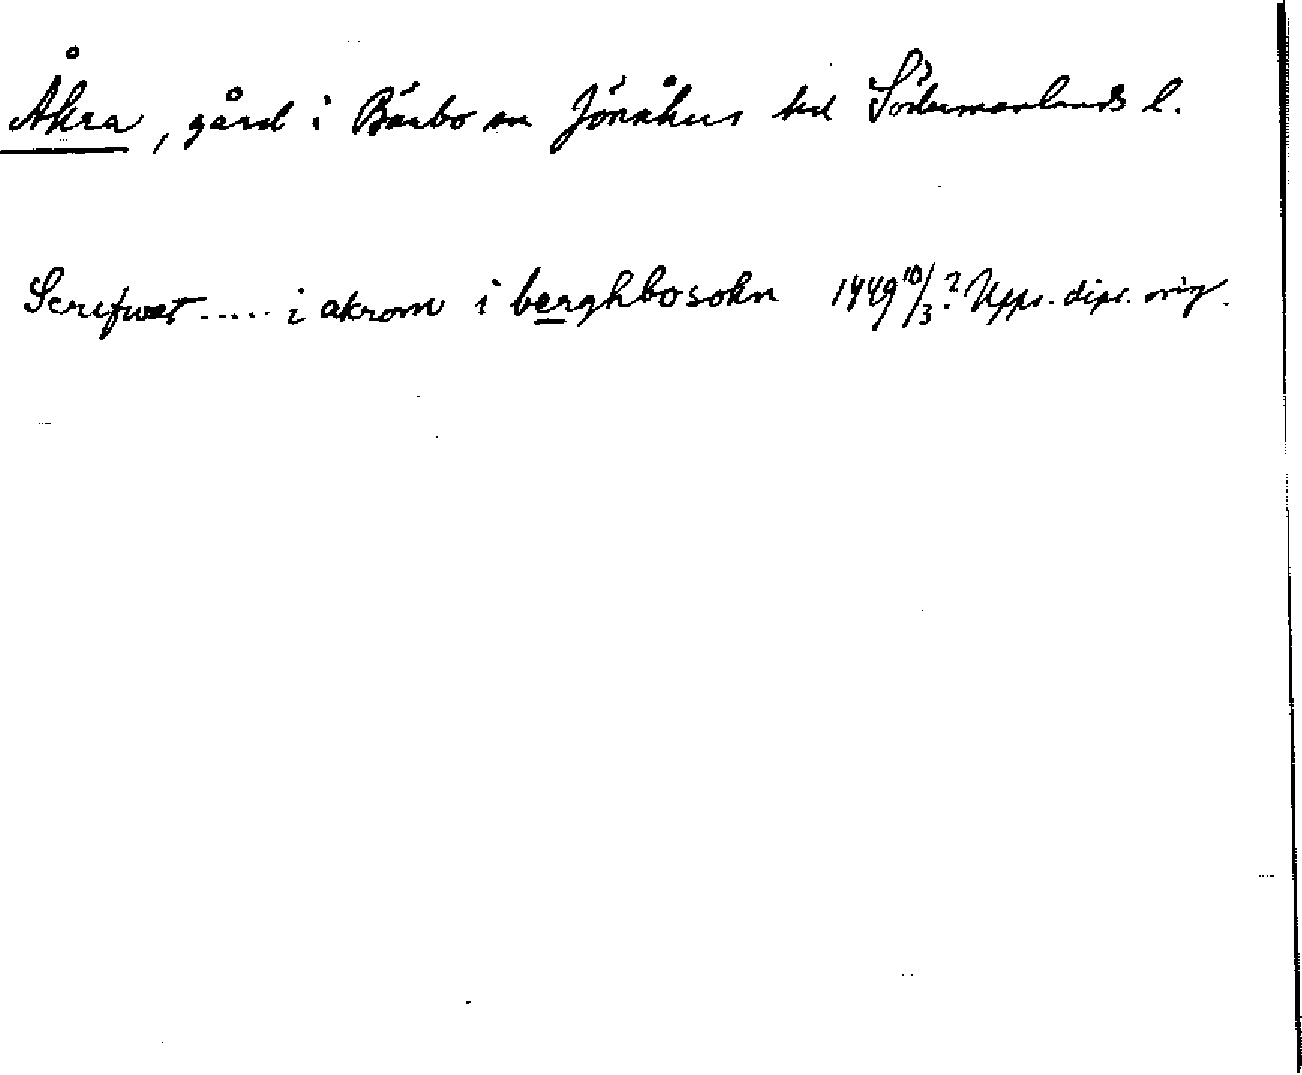 Åkra, gård i Bärbo sn Jönåkers hd Södermanlands l.
Screfwet ..... i akrom i berghbosokn 1449 10/3? Upps. dipl. orig.